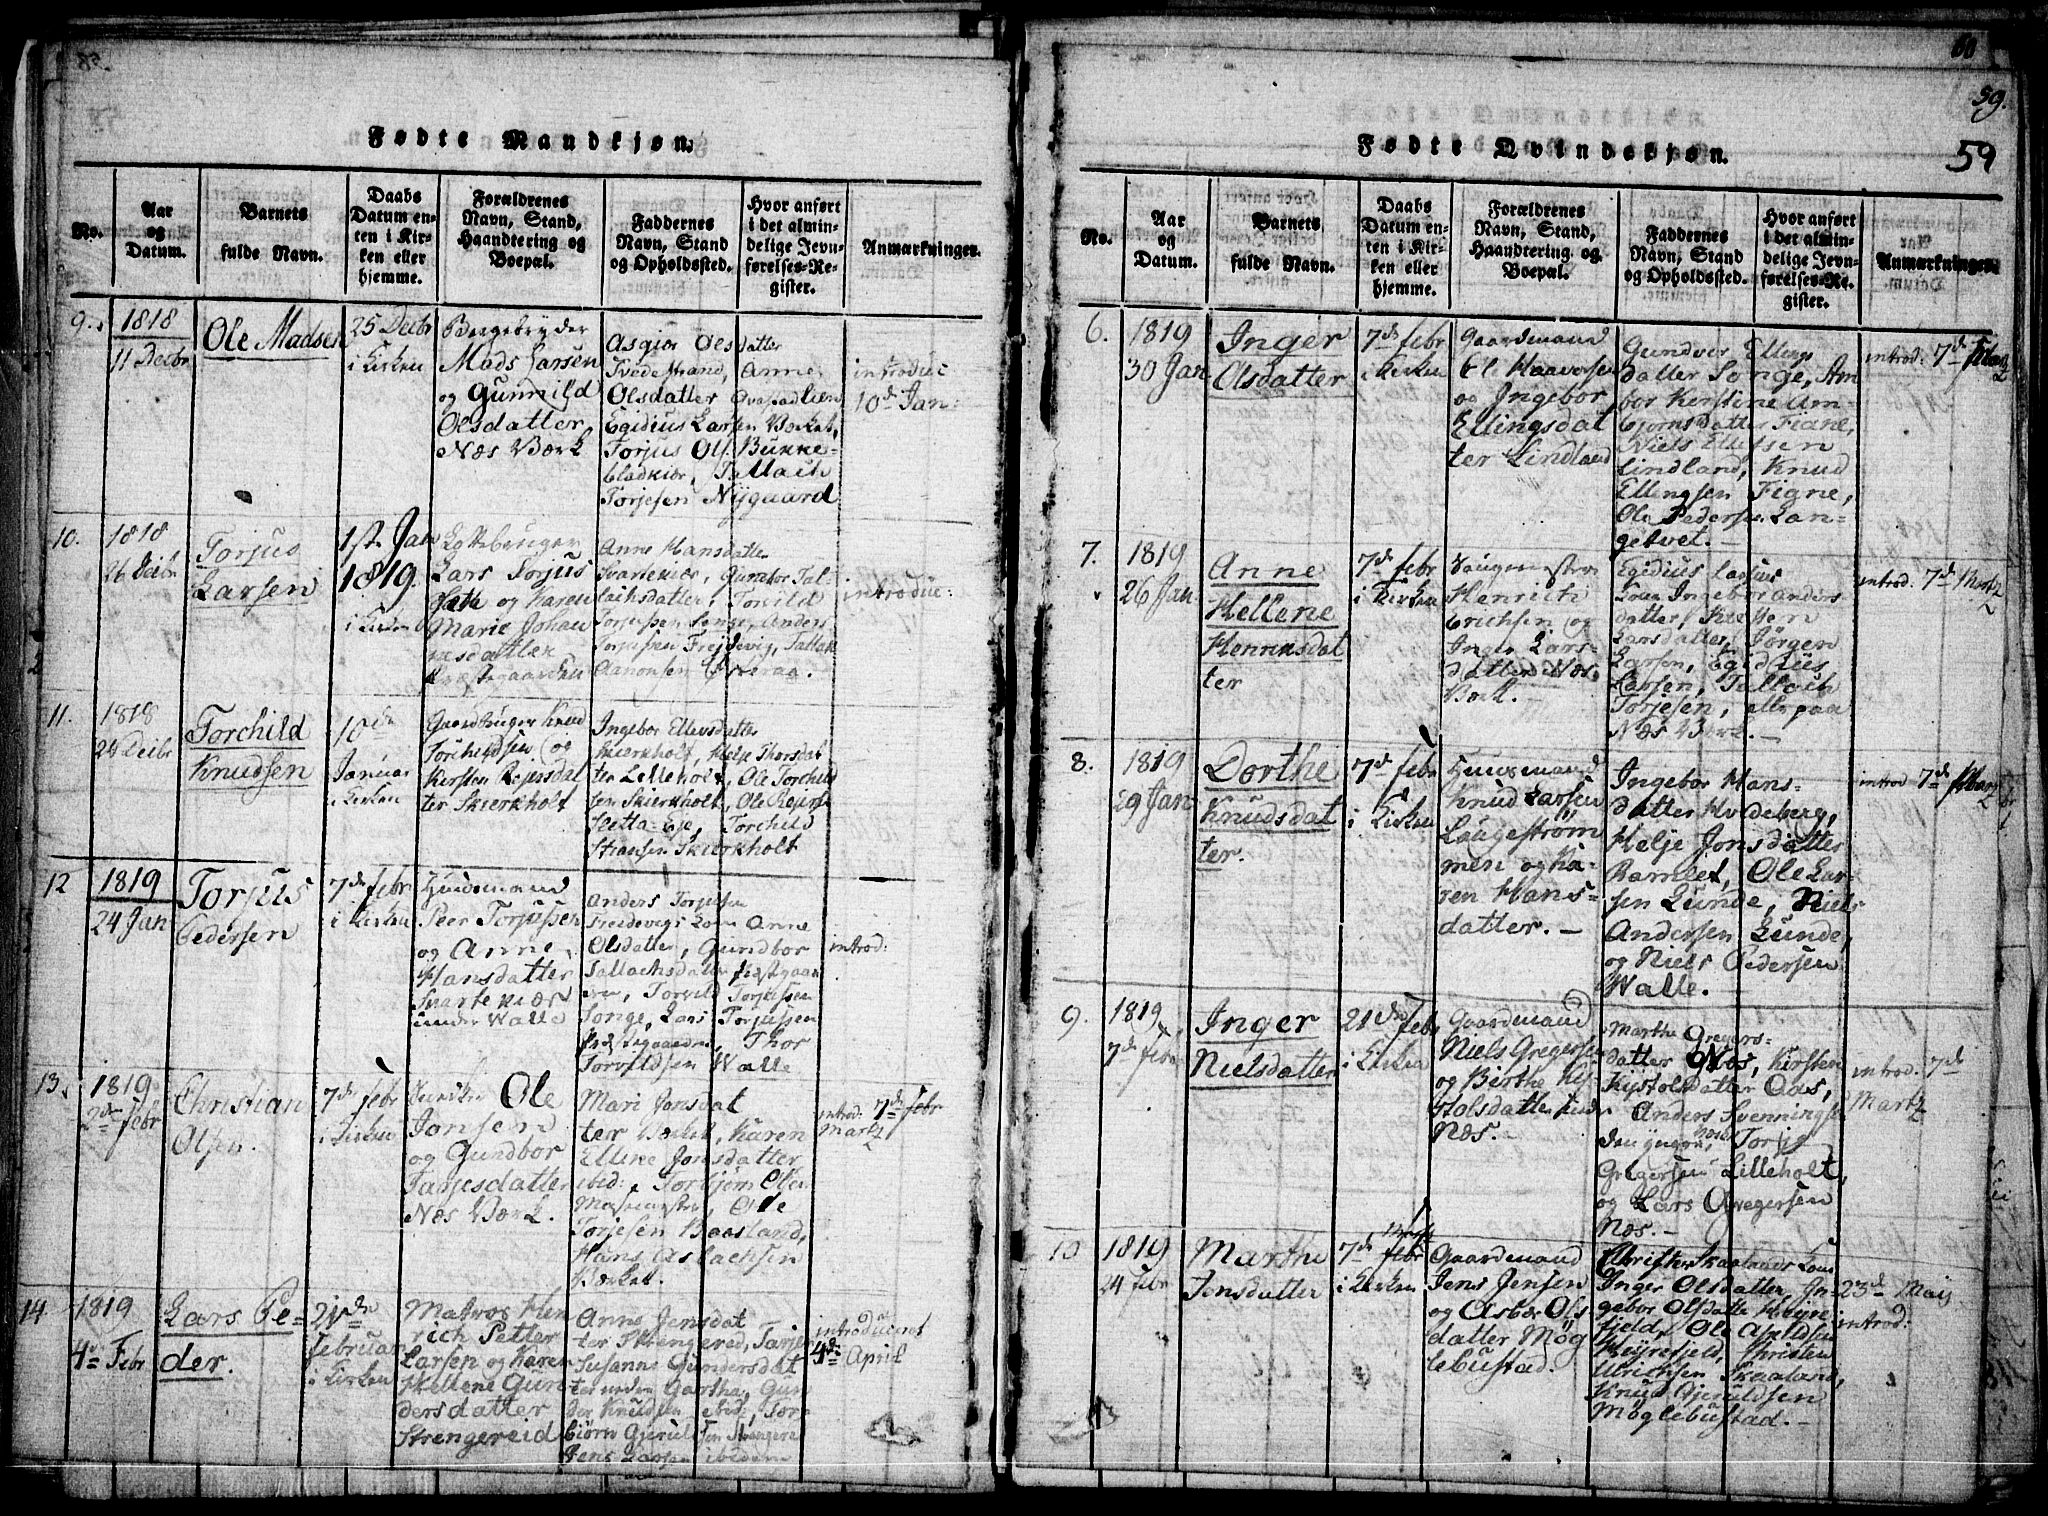 60
59.
59
Fødte Mandkjøn.
No.
Aar
og
Datum.
Barnets
fulde Navn.
Daabs
Datum en-
ten i Kir-
ken eller
hjemme.
Forældrenes
Navn, Stand,
Haandtering og
Boepæl.
Faddernes
Navn, Stand
og Opholdssted.
Hvor anført
i det almin-
delige Jevn-
førelses-Re-
gister.
Anmærkninger.
9.
1818
11 Decbr
Ole Madsen
25 Decbr
i Kirken
Mads Larsen
og Gunnild
Olsdatter
Næs Værk
Asgjær Olsdatter
Tvedestrand, Anne
Olsdatter
Egidius Larsen Værket,
Torjus Ols. Bukke-
bladkiær, Tallach
Torjesen Nygaard
introduc
10de Jan:
10.
1818
26 Decbr
Torjus
Larsen
1ste Jan
1819.
i Kirken
Lars Torjus
og Karen
Marie Johan
nesdatter
Anne Hansdatter
Svartekiær, Gunbor Tal-
lachsdatter, Torvild
Torjussen Songe, Anders
Torjussen Frejdevig, Tallak
Aanonsen
introduc:
11.
1818
24 Decbr
Torchild
Knudsen
10de
Januar
i Kirken
Gaardbruger Knud
Torchildsen og
Kirsten
ter Skierkholt
Ingebor Ellevsdatter
Skierkholt, Helje Thorsdat
ter Lilleholt, Ole Torchild
sen Skierkholt, Ole
Torchild
Skierkholt
12
1819
24 Jan
Torjus
Pedersen
7de Febr
i Kirken
Huusmand
Peer Torjussen
og Anne
Hansdatter
Svartekiær
under Walle
Anders Torjussen
Freidevigs Kone Anne
Olsdatter, Gundbor
Tallachsdatter Præstgaar
den, Torvild Torjussen
Songe, Lars Torjussen
Præstegaarden, Thor
Torvildsen Walle
introd:
13.
1819
2den Febr
Christian
Olsen.
7de Febr
i Kirken
Ole
Jonsen
og Gundbor
Tarjesdatter
Næs Værk.
Mari Jonsdat
ter Værket, Karen
Elline Jonsdatter
ibid: Torbjørn Olsen
Ole
Torjesen Baasland,
Hans Aslachsen
Værket.
introd: 7de Febr
Martz
14
1819
4de Febr
Lars Pe-
der.
21de
Februar
i Kirken
Matros Hen
rich Petter
Larsen og Karen
Hellene Gun
dersdatter
Strengereid
Anne Jensdat
ter Strengereid,
Susanne Gundersdat
ter
Knudsen ibid, Tor-
biørn Gjerulsen
Jens Larsen ibidem
introduceret
4de April
Fødte Qvindekjøn.
No.
Aar
og
Datum.
Barnets
fulde Navn.
Daabs
Datum en-
ten i Kir-
ken eller
hjemme.
Forældrenes
Navn, Stand,
Haandtering og
Boepæl.
Faddernes
Navn, Stand
og Opholdssted.
Hvor anført
i det almin-
delige Jevn-
førelses-Re-
gister.
Anmærkninger.
6.
1819
30 Jan
Inger
Olsdatter
7de Febr
i Kirken
Gaardmand
Ol Haavorsen
og Ingebor
Ellingsdat
ter Lindland
Gundvor Ellings
datter Songe, Am
bor Kerstine Am-
bjørnsdatter Fiane,
Niels Ellefsen
Lindland, Knud
Ellengsen Figne,
Ole Pedersen Lan-
getvet.
introd: 7de Martz
7.
1819
26 Jan
Anne
Hellene
Henriksdat
ter
7de Febr
i Kirken
Henrich
Erichsen og
Inger Lars-
datter Næs
Værk.
Egidius Larsens
Kone Ingebor Anders
datter, Kirsten
Larsdatter, Jørgen
Larsen, Egidius
Larsen, Tallach
Torjesen, alle paa
Næs Værk.
introd: 7de Martz
8.
1819
29 Jan
Dorthe
Knudsdat
ter.
7de Febr
i Kirken
Huusmand
Knud Larsen
Laugestrøm
men og Ka-
ren Hans-
datter.
Ingebor Hans-
datter Holdeberg,
Helje Jonsdatter
Ramlet, Ole Lar-
sen Lunde, Niels
Andersen Lunde,
og Niels Pedersen
Walle.
introd 7de Martz
9.
1819
7de Febr
Inger
Nielsdatter
21de Febr
i Kirken
Gaardmand
Niels Gregersen
og Birthe Ki-
stolsdatter
Næs.
Marthe Gregers-
datter Næs, Kirsten
Kistolsdatter Oas,
Anders Svenningsen
den yngre Næs, Torjy
Gregersen Lilleholt,
og Lars Gregersen
Næs.
introd: 7de
Martz
10
1819
24 Febr
Marthe
Jensdatter
7de Febr
Martz
i Kirken
Gaardmand
Jens Jensen
og Asbør Ols
datter Møg
lebustad.
Christen Skaalands Kone
Inger Olsdatter, In-
gebor Olsdatter Heyre-
fjeld, Ole Axeldsen
Heyrefjeld, Christen
Ulrichsen Skaaland,
Knud Gjeruldsen
Møglebustad.
23de Maij
introd: